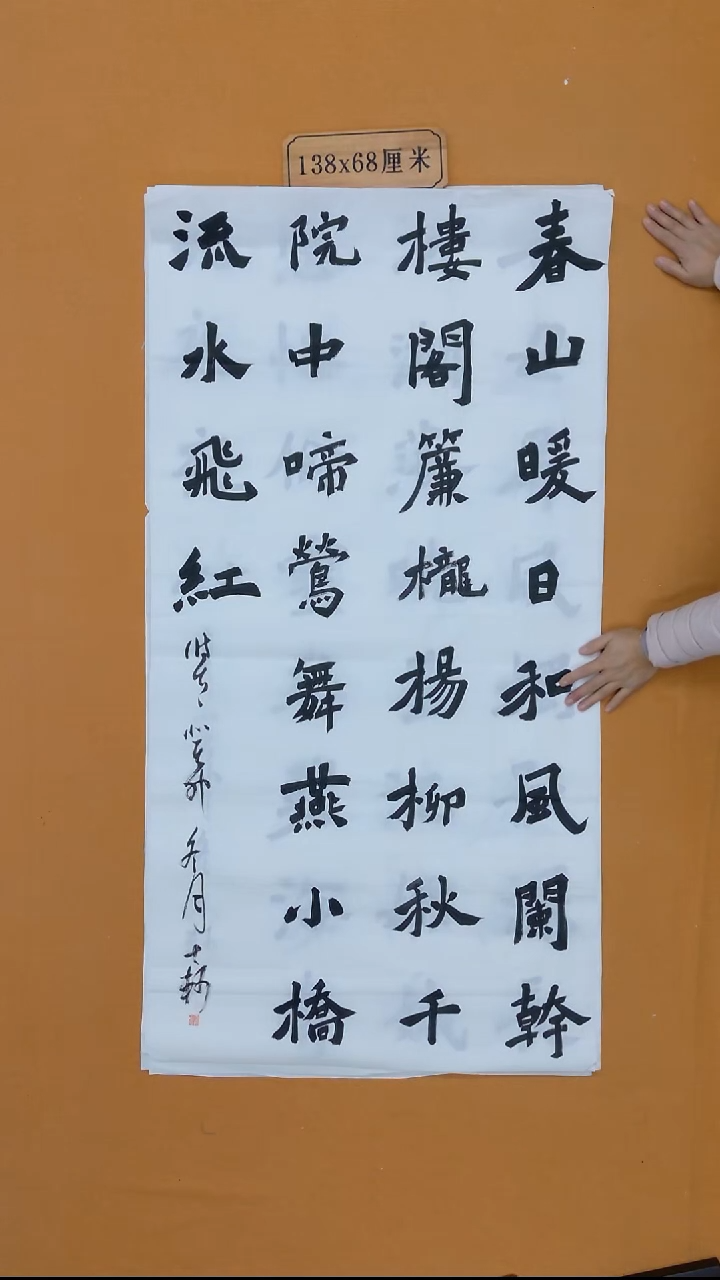 138x68厘米
春山暖日和風闌幹
樓閣簾櫳楊柳秋千
院中啼鶯舞燕小橋
流水飛紅
癸卯冬月